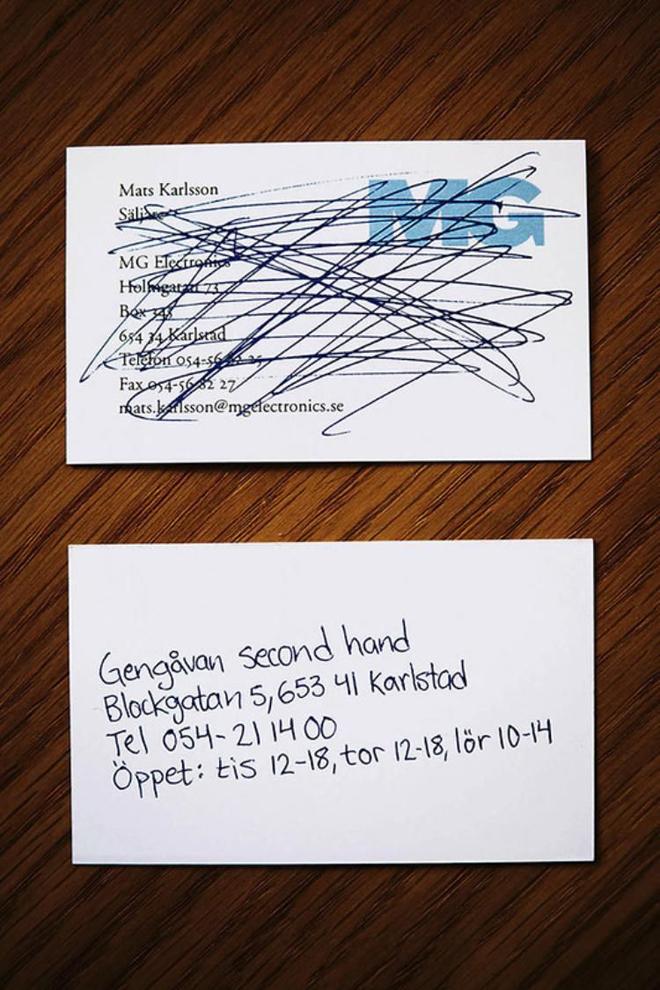 Mats Karlsson
MG
Säljare
MG Electronics
Holmgatan 73
Box 348
654 34 Karlstad
Telefon 054-56 82 25
Fax 054-56 82 27
mats.karlsson@mgelectronics.se
Gengåvan second hand
Blockgatan 5, 653 41 Karlstad
Tel 054-21 14 00
Öppet: tis 12-18, tor 12-18, lör 10-14